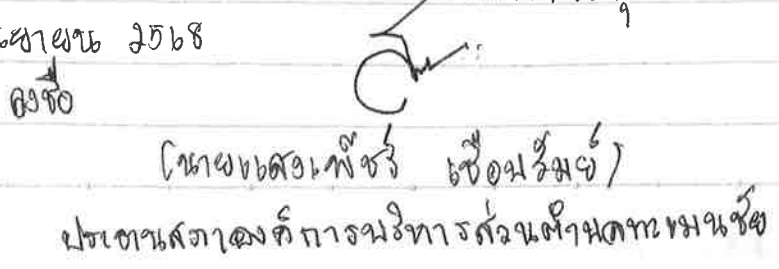 เมษายน 2568
ลงชื่อ
(นายแสงเพ็ชร์ เชือบรัมย์)
ประธานสภาองค์การบริหารส่วนตำบลทะเมนชัย